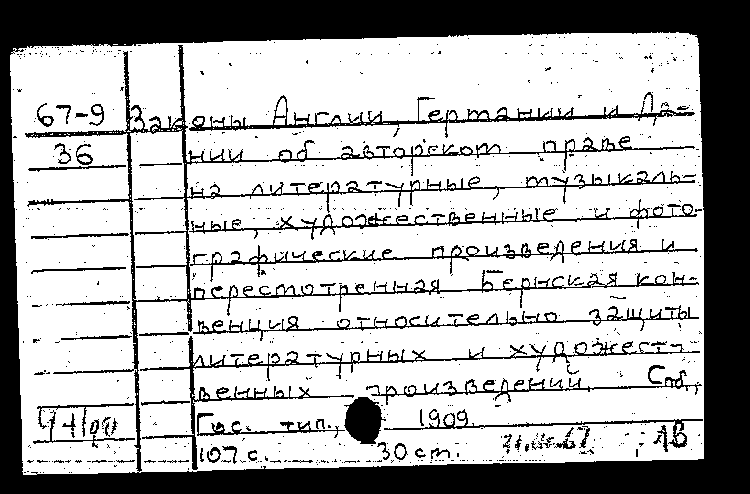 67-9 Законы Англии, Германии и Да-
36 нии об авторском праве
на литературные, музыкаль-
ные, художественные и фото-
графические произведения и
пересмотренная Бернская кон-
венция относительно защиты
литературных и художест-
венных произведений. Спб.,
Гос. тип., 1909.
107 с. 30 см. АВ